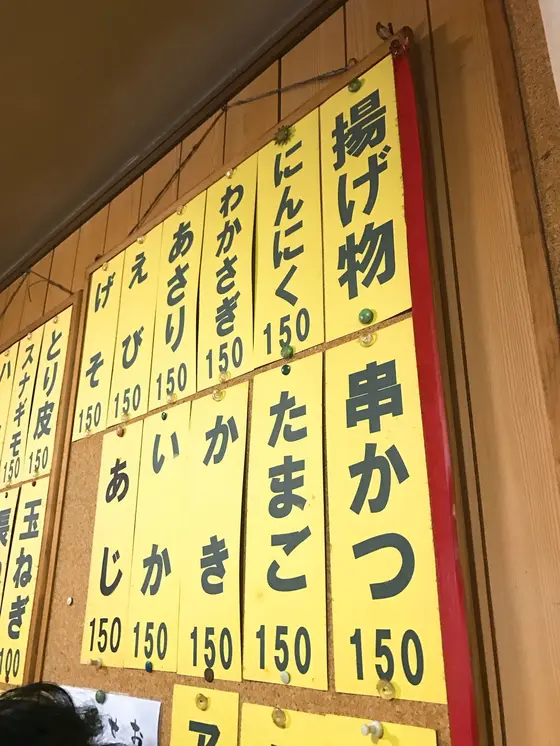 揚げ物
にんにく
150
わかさぎ
150
あさり
150
えび
150
げそ
150
串かつ
150
たまご
150
かき
150
いか
150
あじ
150
とり皮
150
スナギモ
150
ハ
玉ねぎ
100
長
ア